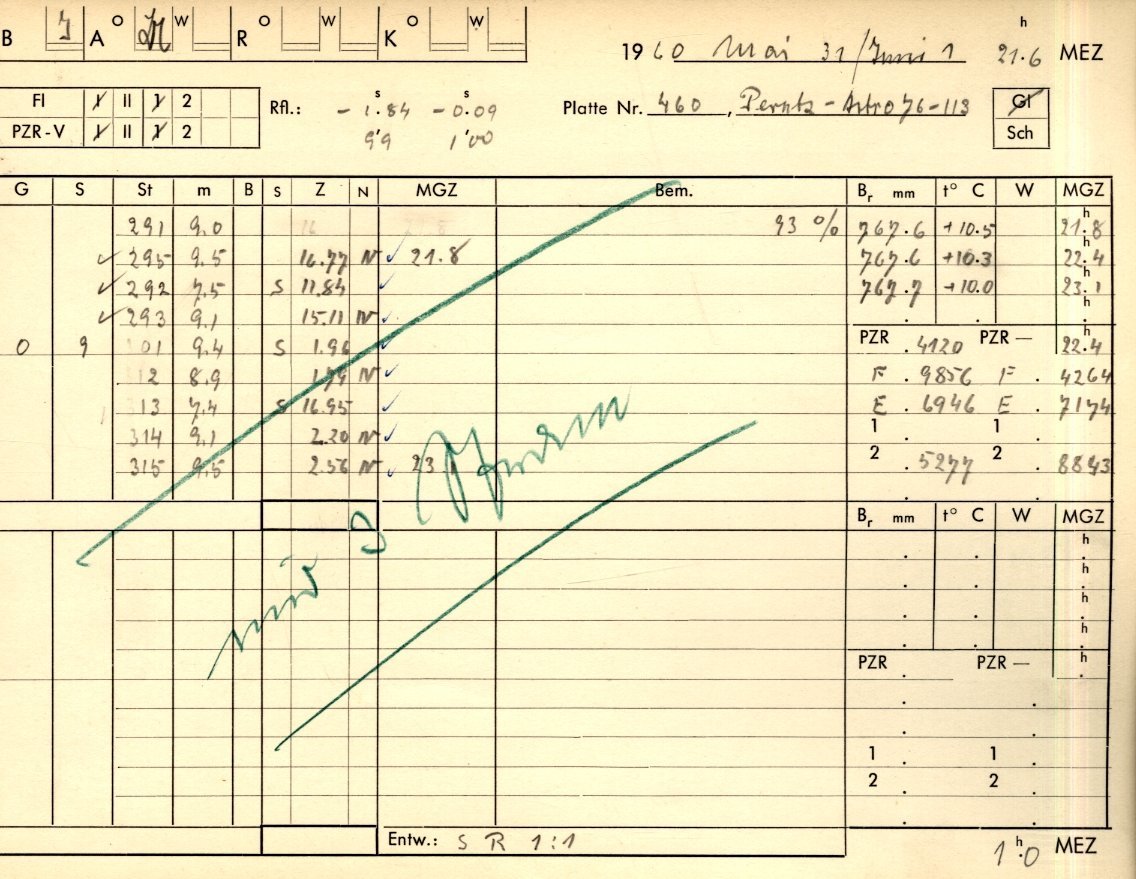 B J A O W R O W K O W
1960 Mai 31/Juni 1 21.6 h MEZ
FI I II 1 2
PZR-V I II 1 2
Rfl.: -1.84 s -0.09 s
9'9 1'00
Platte Nr. 460, Perutz-Astro 76-113
Gl
Sch
G S St m B S Z N MGZ Bem. Br mm t° C W MGZ
291 9.0 93 % 767.6 +10.5 21.8 h
295 9.5 16.77 N 21.8 767.6 +10.3 22.4 h
292 7.5 S 11.84 767.7 +10.0 23.1 h
293 9.1 15.11 N h
PZR .4120 PZR — 22.4 h
0 9 01 9.4 S 1.96
12 8.9 N F .9856 F . 4264
13 7.4 S 16.95 E .6946 E . 7174
314 9.1 2.20 N 1 . 1 .
315 9.5 2.56 N 23 2 .5277 2 . 8843
Br mm t° C W MGZ
h
h
h
h
PZR . PZR — h
1 . 1 .
2 . 2 .
Entw.: S R 1:1
1.0 h MEZ